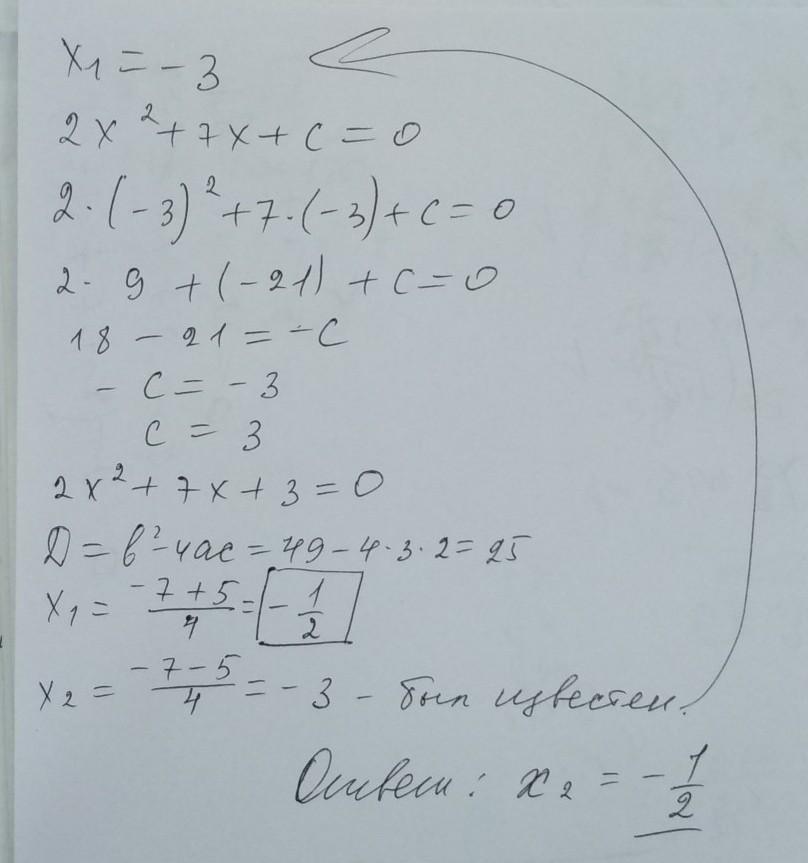 x₁ = -3
2x² + 7x + c = 0
2·(-3)² + 7·(-3) + c = 0
2· 9 + (-21) + c = 0
18 - 21 = -c
- c = -3
c = 3
2x² + 7x + 3 = 0
D = b² - 4ac = 49 - 4·3·2 = 25
x₁ = (-7+5)/4 = -1/2
x₂ = (-7-5)/4 = -3 - был известен.
Ответ: x₂ = -1/2